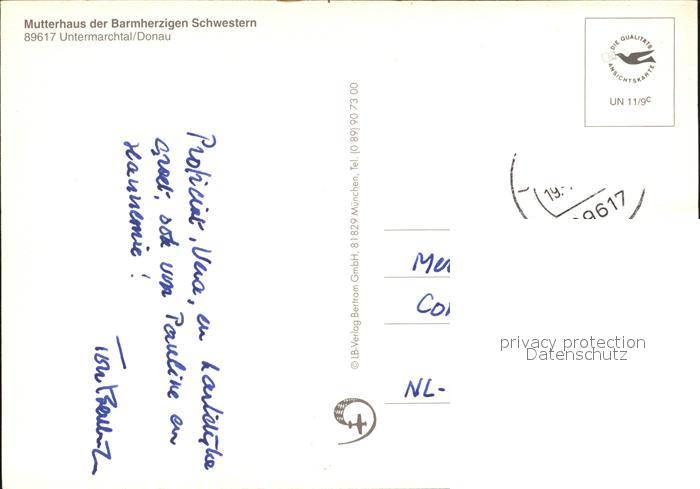 Mutterhaus der Barmherzigen Schwestern
89617 Untermarchtal/Donau
DIE QUALITÄTS
ANSICHTSKARTE
UN 11/9c
Proficiat, Vera, en hartelijke
groet, ook van Pauline en
Hannemie!
© LB-Verlag Bertram GmbH, 81829 München, Tel. (0 89) 90 73 00
19
89617
NL-
privacy protection
Datenschutz